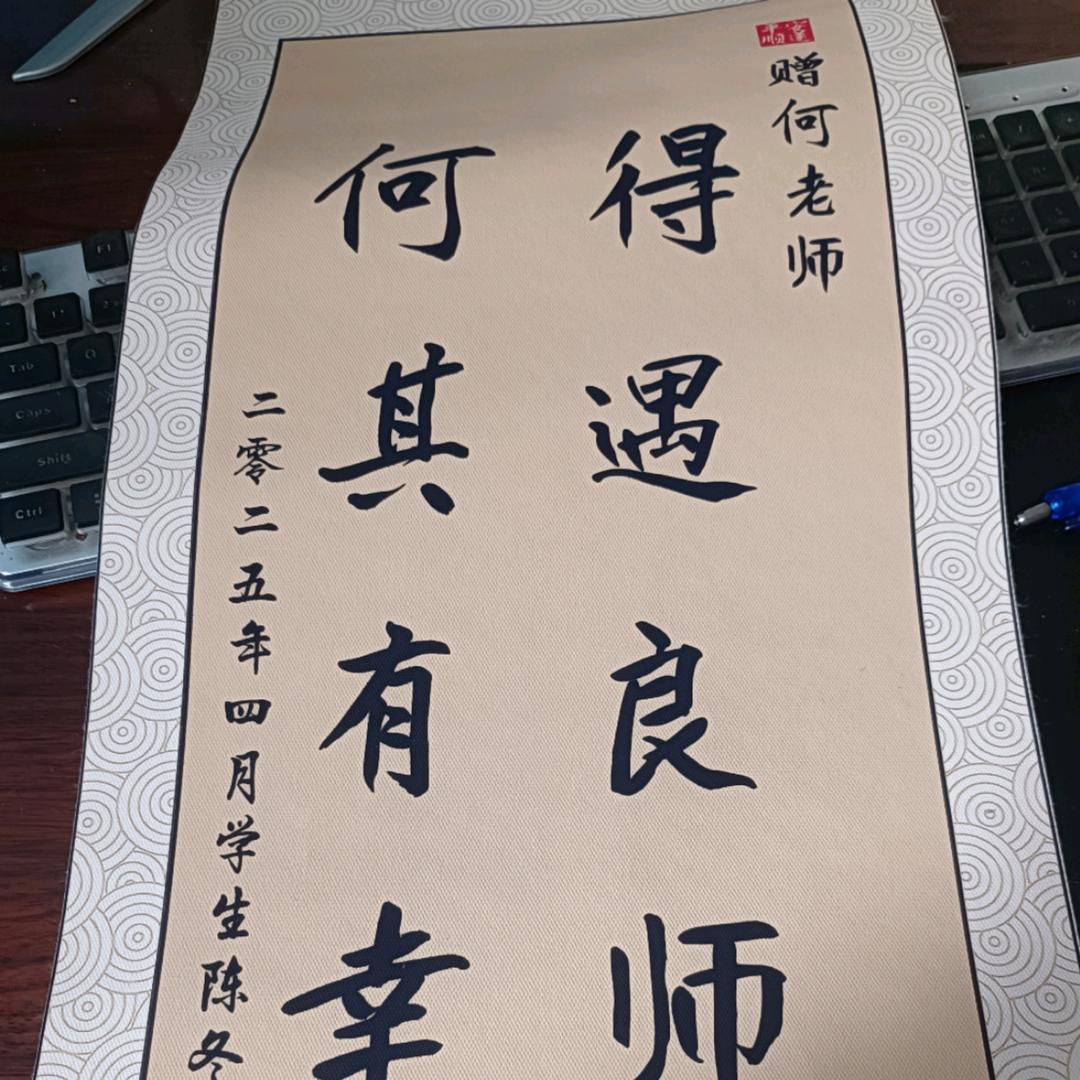 赠何老师
得遇良师
何其有幸
二零二五年四月学生陈冬
Tab
Caps
Shift
Ctrl
F1